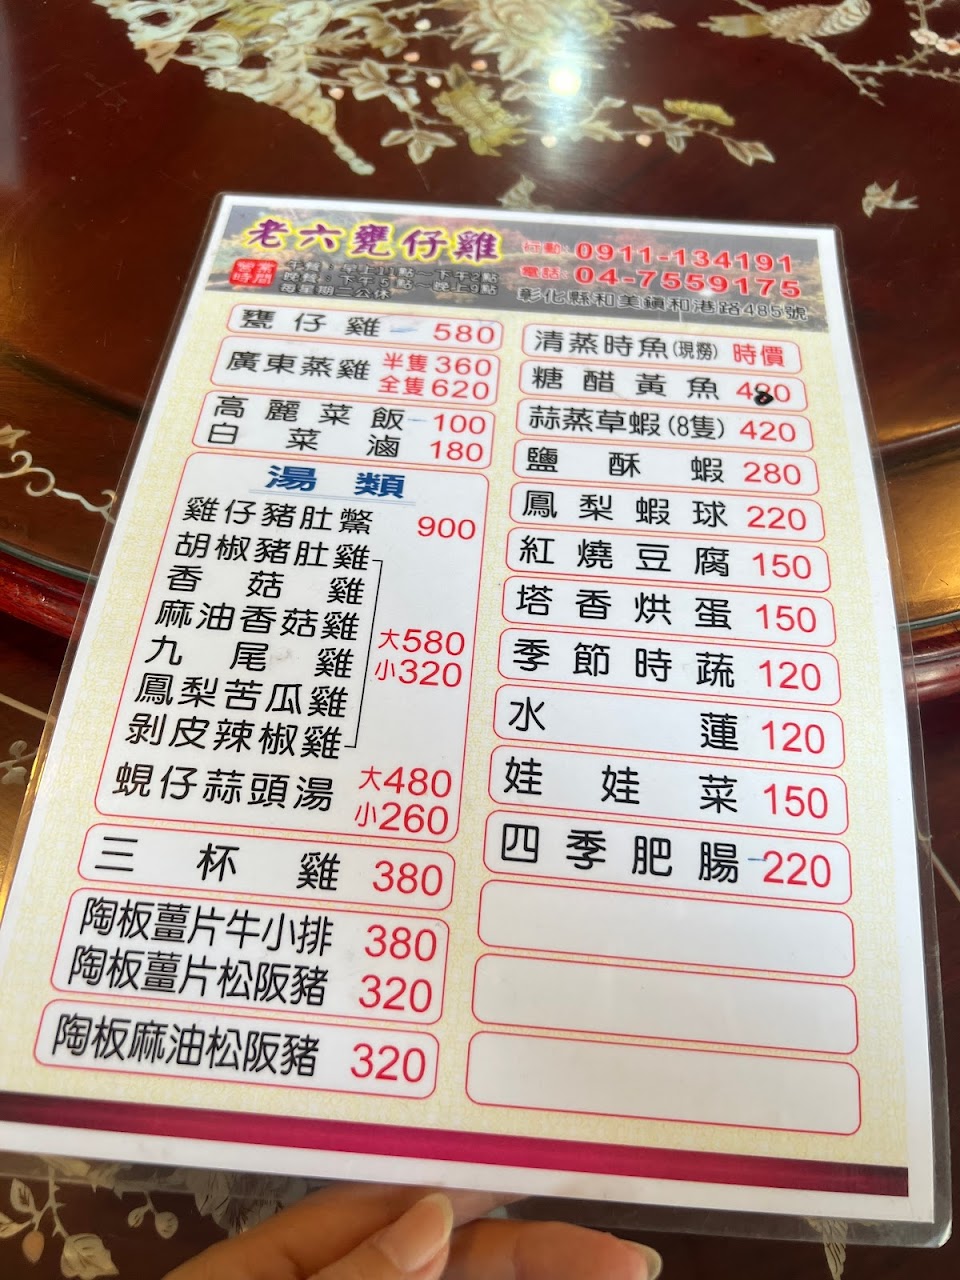 老六甕仔雞
行動：0911-134191
電話：04-7559175
彰化縣和美鎮和港路485號
營業時間
午餐：早上11點～下午2點
晚餐：下午5點～晚上9點
每星期二公休
甕仔雞 580
廣東蒸雞 半隻360
全隻620
高麗菜飯 100
白菜滷 180
湯類
雞仔豬肚鱉 900
胡椒豬肚雞
香菇雞
麻油香菇雞
九尾雞
鳳梨苦瓜雞
剝皮辣椒雞
大580
小320
蜆仔蒜頭湯 大480
小260
三杯雞 380
陶板薑片牛小排 380
陶板薑片松阪豬 320
陶板麻油松阪豬 320
清蒸時魚(現撈) 時價
糖醋黃魚 480
蒜蒸草蝦(8隻) 420
鹽酥蝦 280
鳳梨蝦球 220
紅燒豆腐 150
塔香烘蛋 150
季節時蔬 120
水蓮 120
娃娃菜 150
四季肥腸 220